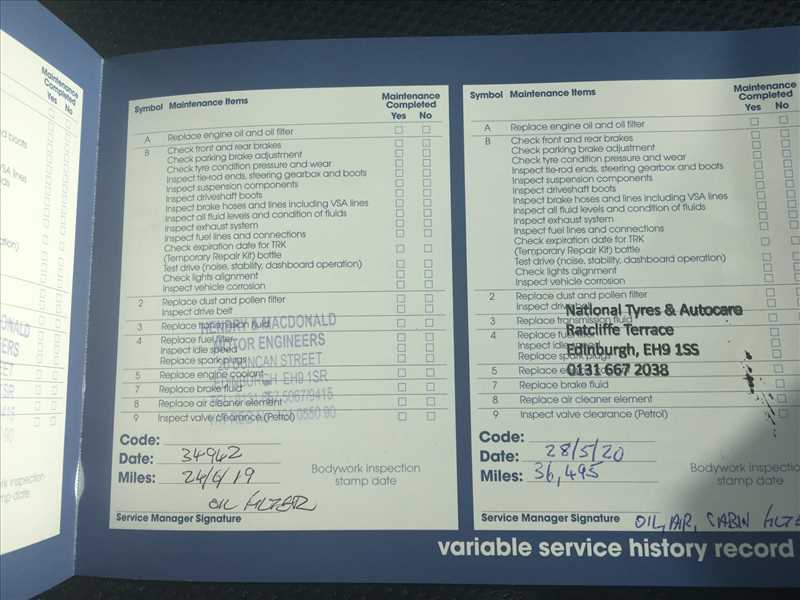 Maintenance
Completed
Yes No
a boots
VSA lines
ds
ation)
DONALD
EERS
STREET
1SR
Bodywork inspection
stamp date
Symbol Maintenance Items Maintenance
Completed
Yes No
A Replace engine oil and oil filter
B Check front and rear brakes
Check parking brake adjustment
Check tyre condition pressure and wear
Inspect tie-rod ends, steering gearbox and boots
Inspect suspension components
Inspect driveshaft boots
Inspect brake hoses and lines including VSA lines
Inspect all fluid levels and condition of fluids
Inspect exhaust system
Inspect fuel lines and connections
Check expiration date for TRK
(Temporary Repair Kit) bottle
Test drive (noise, stability, dashboard operation)
Check lights alignment
Inspect vehicle corrosion
2 Replace dust and pollen filter
Inspect drive belt
3 Replace transmission fluid
4 Replace fuel filter
Inspect idle speed
Replace spark plugs
5 Replace engine coolant
7 Replace brake fluid
8 Replace air cleaner element
9 Inspect valve clearance (Petrol)
MACDONALD
MOTOR ENGINEERS
DUNCAN STREET
EDINBURGH EH9 1SR
Code:
Date: 34942
Miles: 24/6/19
Bodywork inspection
stamp date
OIL FILTER
Service Manager Signature
Symbol Maintenance Items Maintenance
Completed
Yes No
A Replace engine oil and oil filter
B Check front and rear brakes
Check parking brake adjustment
Check tyre condition pressure and wear
Inspect tie-rod ends, steering gearbox and boots
Inspect suspension components
Inspect driveshaft boots
Inspect brake hoses and lines including VSA lines
Inspect all fluid levels and condition of fluids
Inspect exhaust system
Inspect fuel lines and connections
Check expiration date for TRK
(Temporary Repair Kit) bottle
Test drive (noise, stability, dashboard operation)
Check lights alignment
Inspect vehicle corrosion
2 Replace dust and pollen filter
Inspect drive belt
3 Replace transmission fluid
4 Replace fuel
Inspect
Replace spark plugs
5 Replace
7 Replace brake fluid
8 Replace air cleaner element
9 Inspect valve clearance (Petrol)
National Tyres & Autocare
Ratcliffe Terrace
Edinburgh, EH9 1SS
0131 667 2038
Code:
Date: 28/5/20
Miles: 36,495
Bodywork inspectio
stamp date
Service Manager Signature OIL, AIR, CABIN FILTE
variable service history record